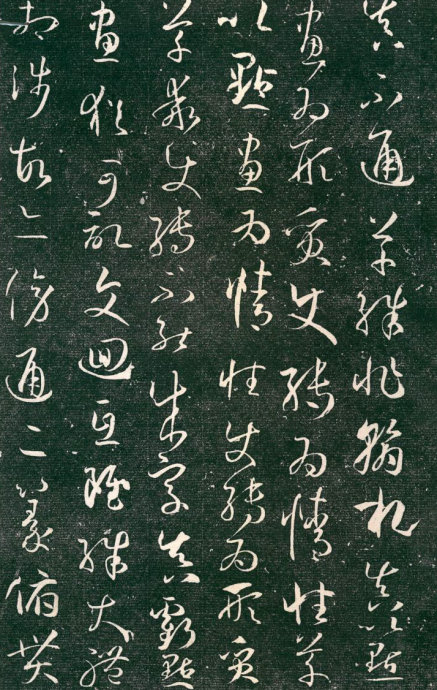 真不通草殊非翰札真以點
畫為形質使轉為情性草
以點畫為情性使轉為形質
草乖使轉不能成字真虧點
畫猶可記文迴互雖殊大體
相涉故亦傍通二篆俯貫